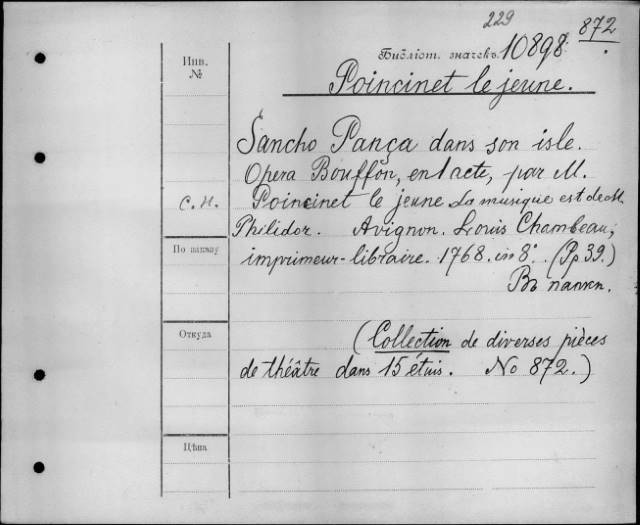 229
872
Библіот. значекъ 10898
Poincinet le jeune.
Инв.
№
Sancho Pança dans son isle.
Opera Bouffon, en 1 acte, par M.
с.н. Poincinet le jeune La musique est de M.
Philidor. Avignon. Louis Chambeau,
По заказу
imprimeur-libraire. 1768. in 8°. (Pp 39.)
Въ папкѣ.
Откуда
(Collection de diverses pièces
de théâtre dans 15 étuis. No 872.)
Цѣна